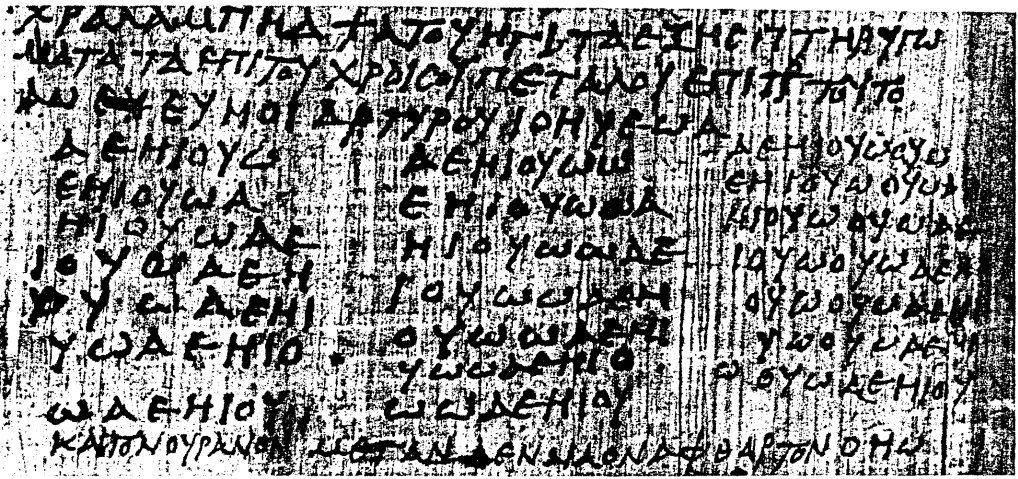 ΜΑΤΑ ΤΑ ΕΠΙ ΤΟΥ ΧΡΟΙΣΟΥ ΠΕΤΑΛΟΥ ΕΠΙ ΤΟΥΤΟ
ΕΥΜΟΙ ΑΡΓΥΡΟΥ ΙΟΗΥΕΩΑ
ΑΕΗΙΟΥΩ ΑΕΗΙΟΥΩΩ ΑΕΗΙΟΥΩΟΥΩ
ΕΗΙΟΥΩΑ ΕΗΙΟΥΩΩΑ ΕΗΙΟΥΩΟΥΩΑ
ΗΙΟΥΩΑΕ ΗΙΟΥΩΩΑΕ ΗΙΟΥΩΟΥΩΑΕ
ΙΟΥΩΑΕΗ ΙΟΥΩΩΑΕΗ ΙΟΥΩΟΥΩΑΕΗ
ΟΥΩΑΕΗΙ ΟΥΩΩΑΕΗΙ ΟΥΩΟΥΩΑΕΗΙ
ΥΩΑΕΗΙΟ ΥΩΩΑΕΗΙΟ ΥΩΟΥΩΑΕΗΙ
ΩΑΕΗΙΟΥ ΩΩΑΕΗΙΟΥ ΩΟΥΩΑΕΗΙΟΥ
ΚΑΙ ΤΟΝ ΟΥΡΑΝΟΝ ΜΕΓΑΝ ΑΕΝΝΑΟΝ ΑΦΘΑΡΤΟΝ ΟΗΩ